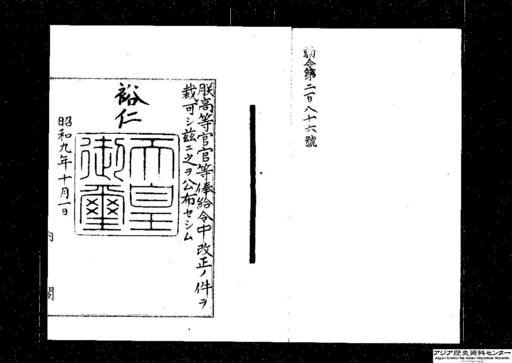 勅令第二百八十六號
朕高等官官等俸給令中改正ノ件ヲ
裁可シ茲ニ之ヲ公布セシム
裕仁
天皇御璽
昭和九年十月一日
内閣
アジア歴史資料センター
Japan Center for Asian Historical Records